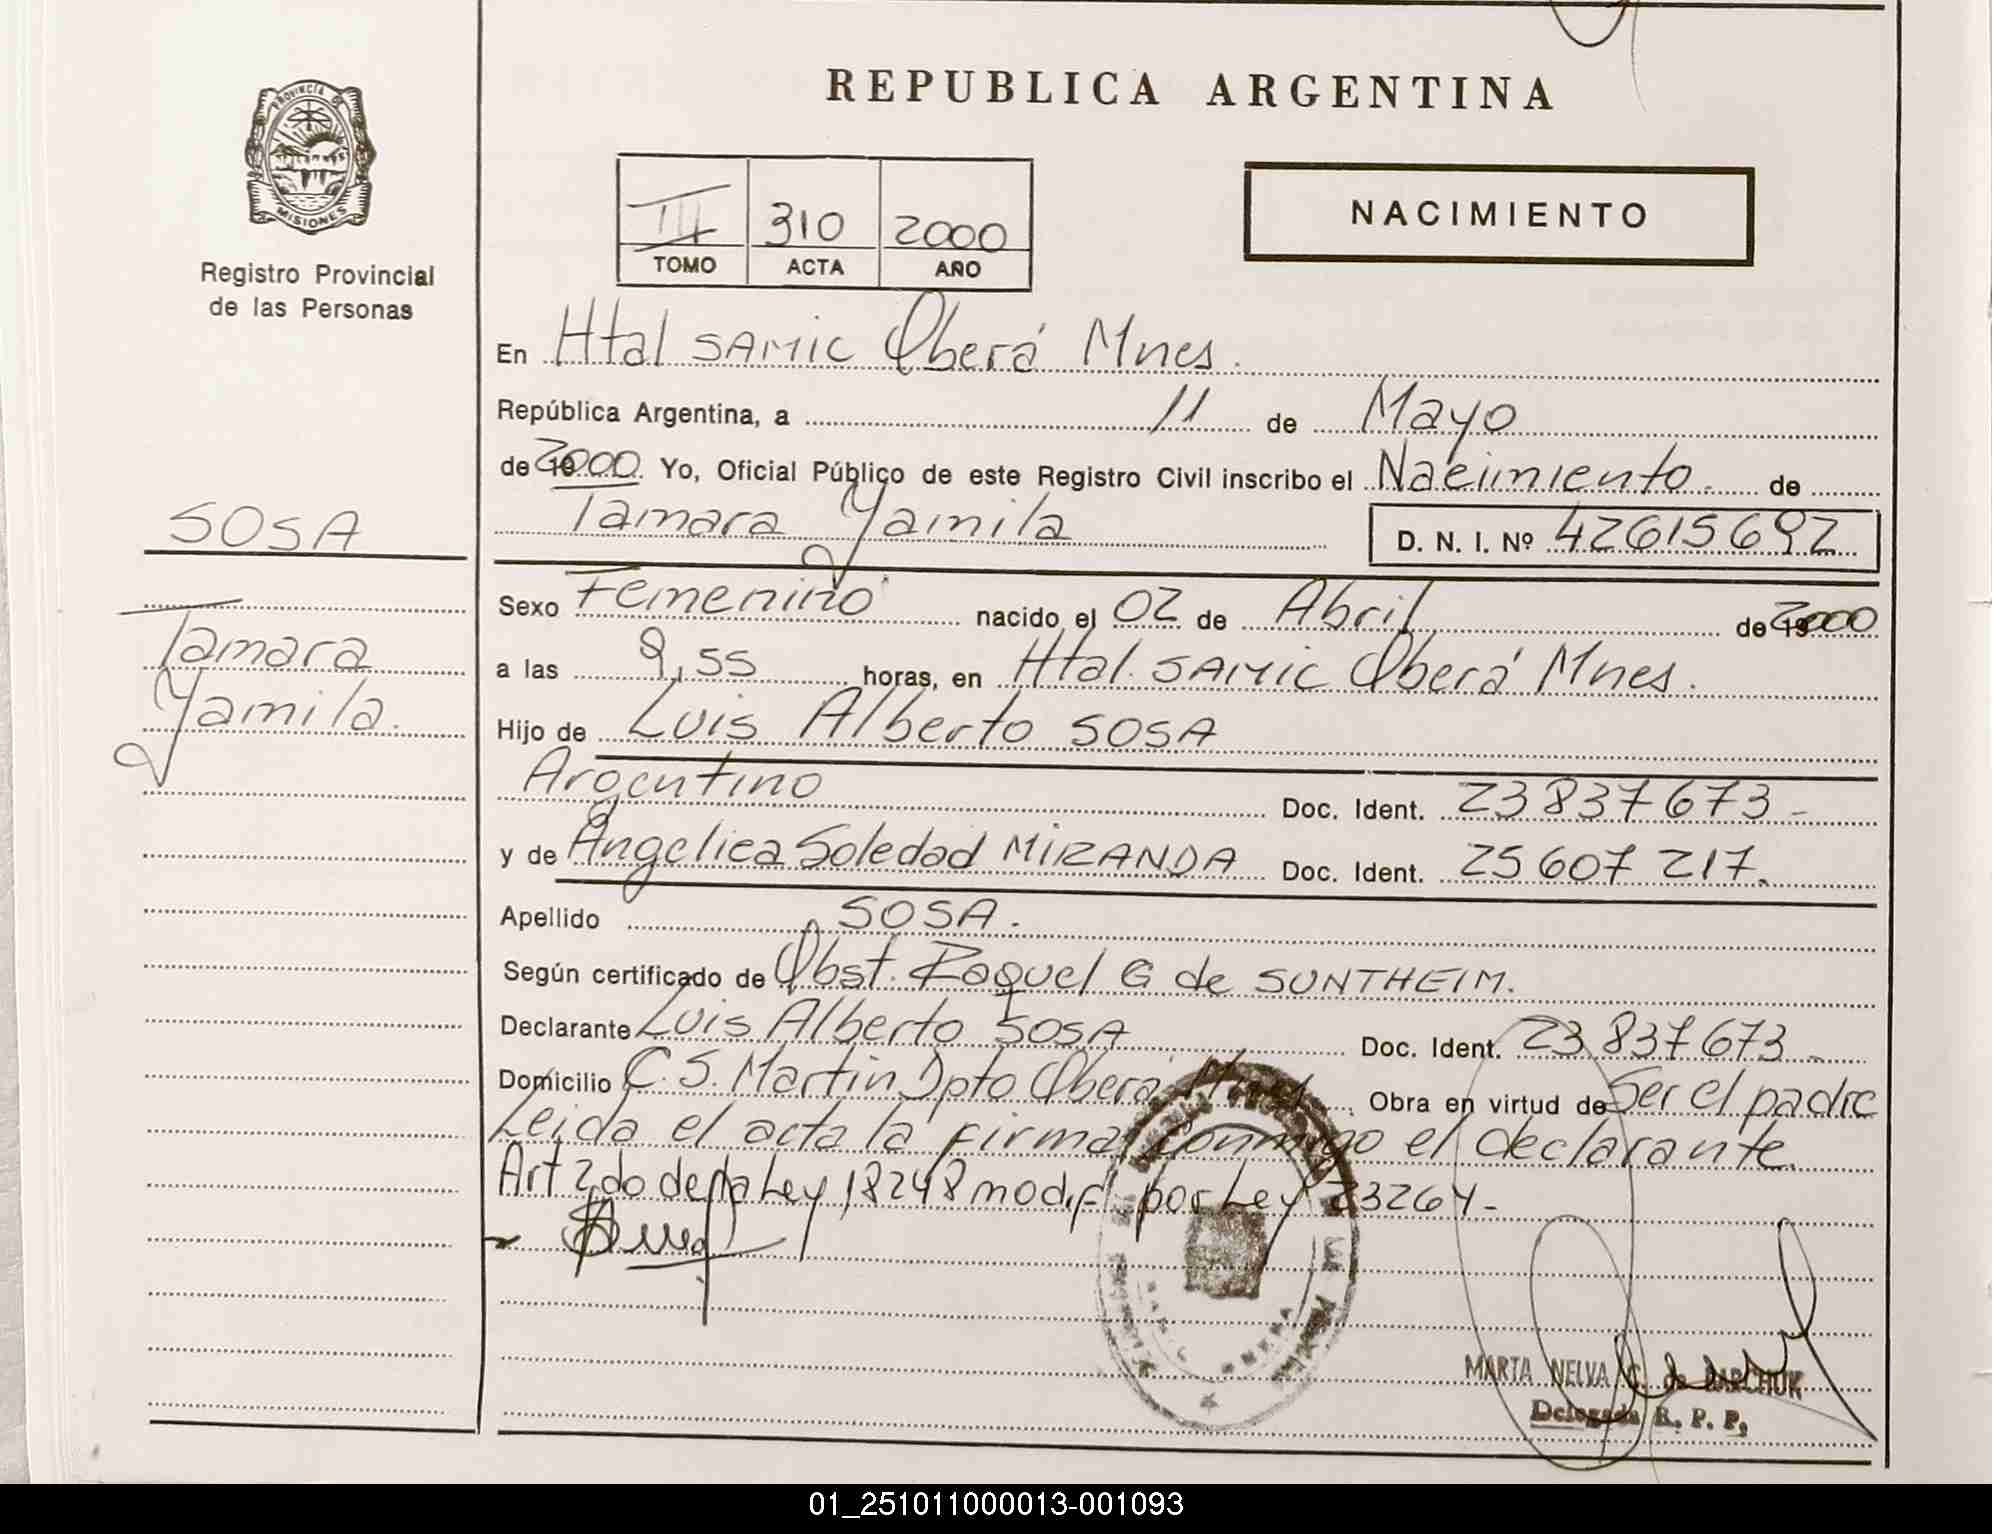 REPUBLICA ARGENTINA
PROVINCIA DE
MISIONES
Registro Provincial
de las Personas
III 310 2000
TOMO ACTA AÑO
NACIMIENTO
En Htal SAMIC Oberá Mnes.
República Argentina, a 11 de Mayo
de 2000. Yo, Oficial Público de este Registro Civil inscribo el Nacimiento. de
Tamara Yamila D. N. I. Nº 42615692
SOSA
Tamara
Yamila.
Sexo Femenino nacido el 02 de Abril de 2000
a las 9,55 horas, en Htal. SAMIC Oberá Mnes.
Hijo de Luis Alberto SOSA
Argentino Doc. Ident. 23 837 673 -
y de Angelica Soledad MIRANDA Doc. Ident. 25 607 217.
Apellido SOSA.
Según certificado de Obst. Raquel G de SUNTHEIM.
Declarante Luis Alberto SOSA Doc. Ident. 23 837 673 -
Domicilio C. S. Martin Dpto Oberá Mnes Obra en virtud de Ser el padre
Leida el acta la firma conmigo el declarante.
Art 2do de la Ley 18248 modif. por Ley 23264 -
MARTA NELVA C. de BARCHUK
Delegada R. P. P.
01_251011000013-001093